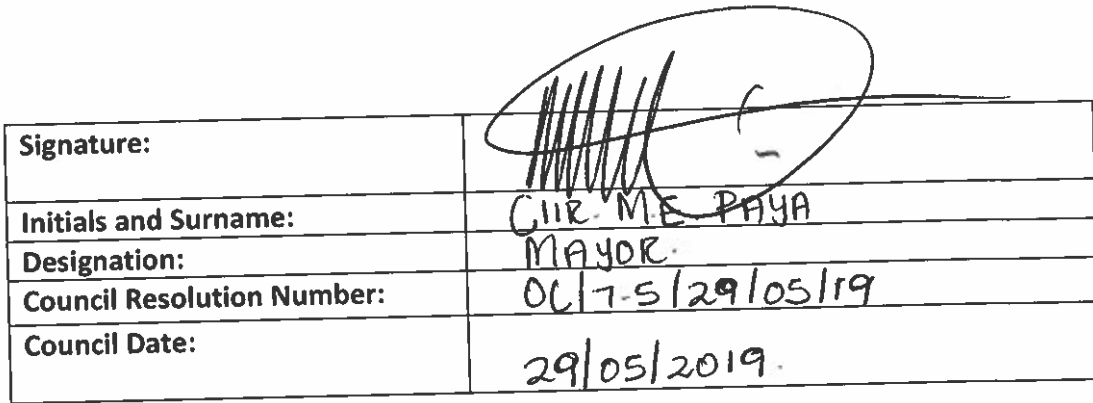 Signature:
Initials and Surname: CllR. M.E PAYA
Designation: MAYOR.
Council Resolution Number: OC/7.5/29/05/19
Council Date: 29/05/2019.